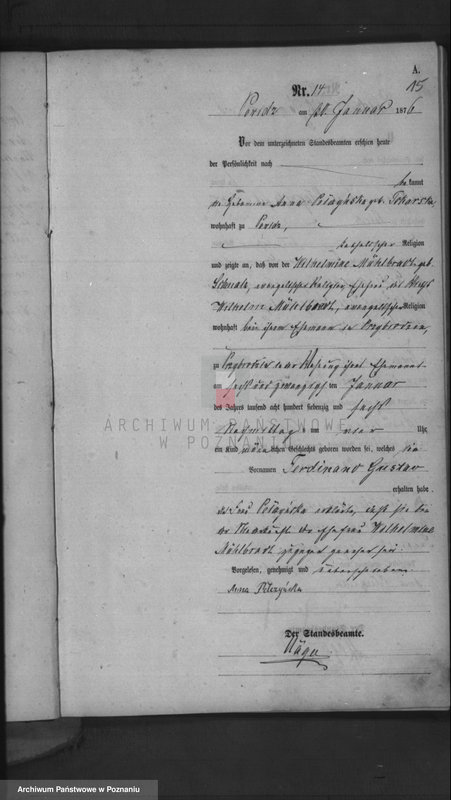 A.
Nr. 14
15
am 30. Januar 1876
Vor dem unterzeichneten Standesbeamten erschien heute
der Persönlichkeit nach
bekannt
die Hebamme Anna geb.
wohnhaft zu
katholischer Religion
und zeigte an, daß von der Wilhelmine Mühlbradt geb.
evangelischer Religion, Ehefrau des
Wilhelm Mühlbradt, evangelischer Religion
wohnhaft bei ihrem Ehemann in
zu in der Wohnung ihres Ehemannes
am sechs und zwanzigsten Januar
des Jahres tausend acht hundert siebenzig und sechs
Nachmittags um vier Uhr,
ein Kind männlichen Geschlechts geboren worden sei, welches die
Vornamen Ferdinand Gustav
erhalten habe.
Die Frau erklärte, daß sie bei
der Niederkunft der Ehefrau Wilhelmine
Mühlbradt zugegen gewesen sei.
Vorgelesen, genehmigt und unterschrieben
Anna
Der Standesbeamte.
ARCHIWUM PAŃSTWOWE
W POZNANIU
Archiwum Państwowe w Poznaniu